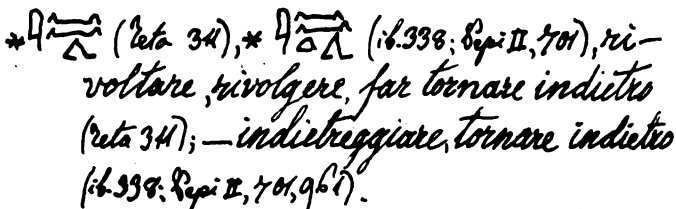 * (Teta 341), * (ib. 338; Pepi II, 701), ri-
voltare, rivolgere, far tornare indietro
(Teta 341); — indietreggiare, tornare indietro
(ib. 338; Pepi II, 701, 961).